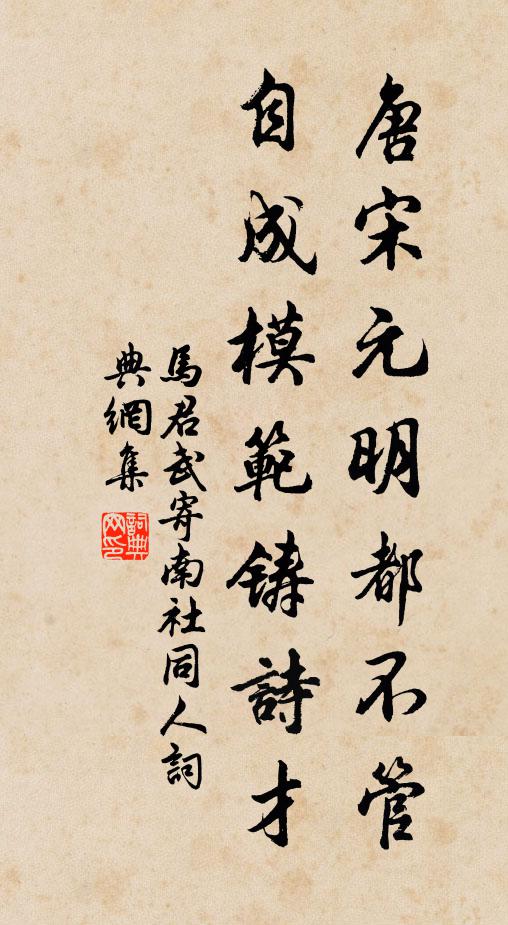 唐宋元明都不管
自成模範鑄詩才
馬君武寄南社同人詞
典網集
詞典網印